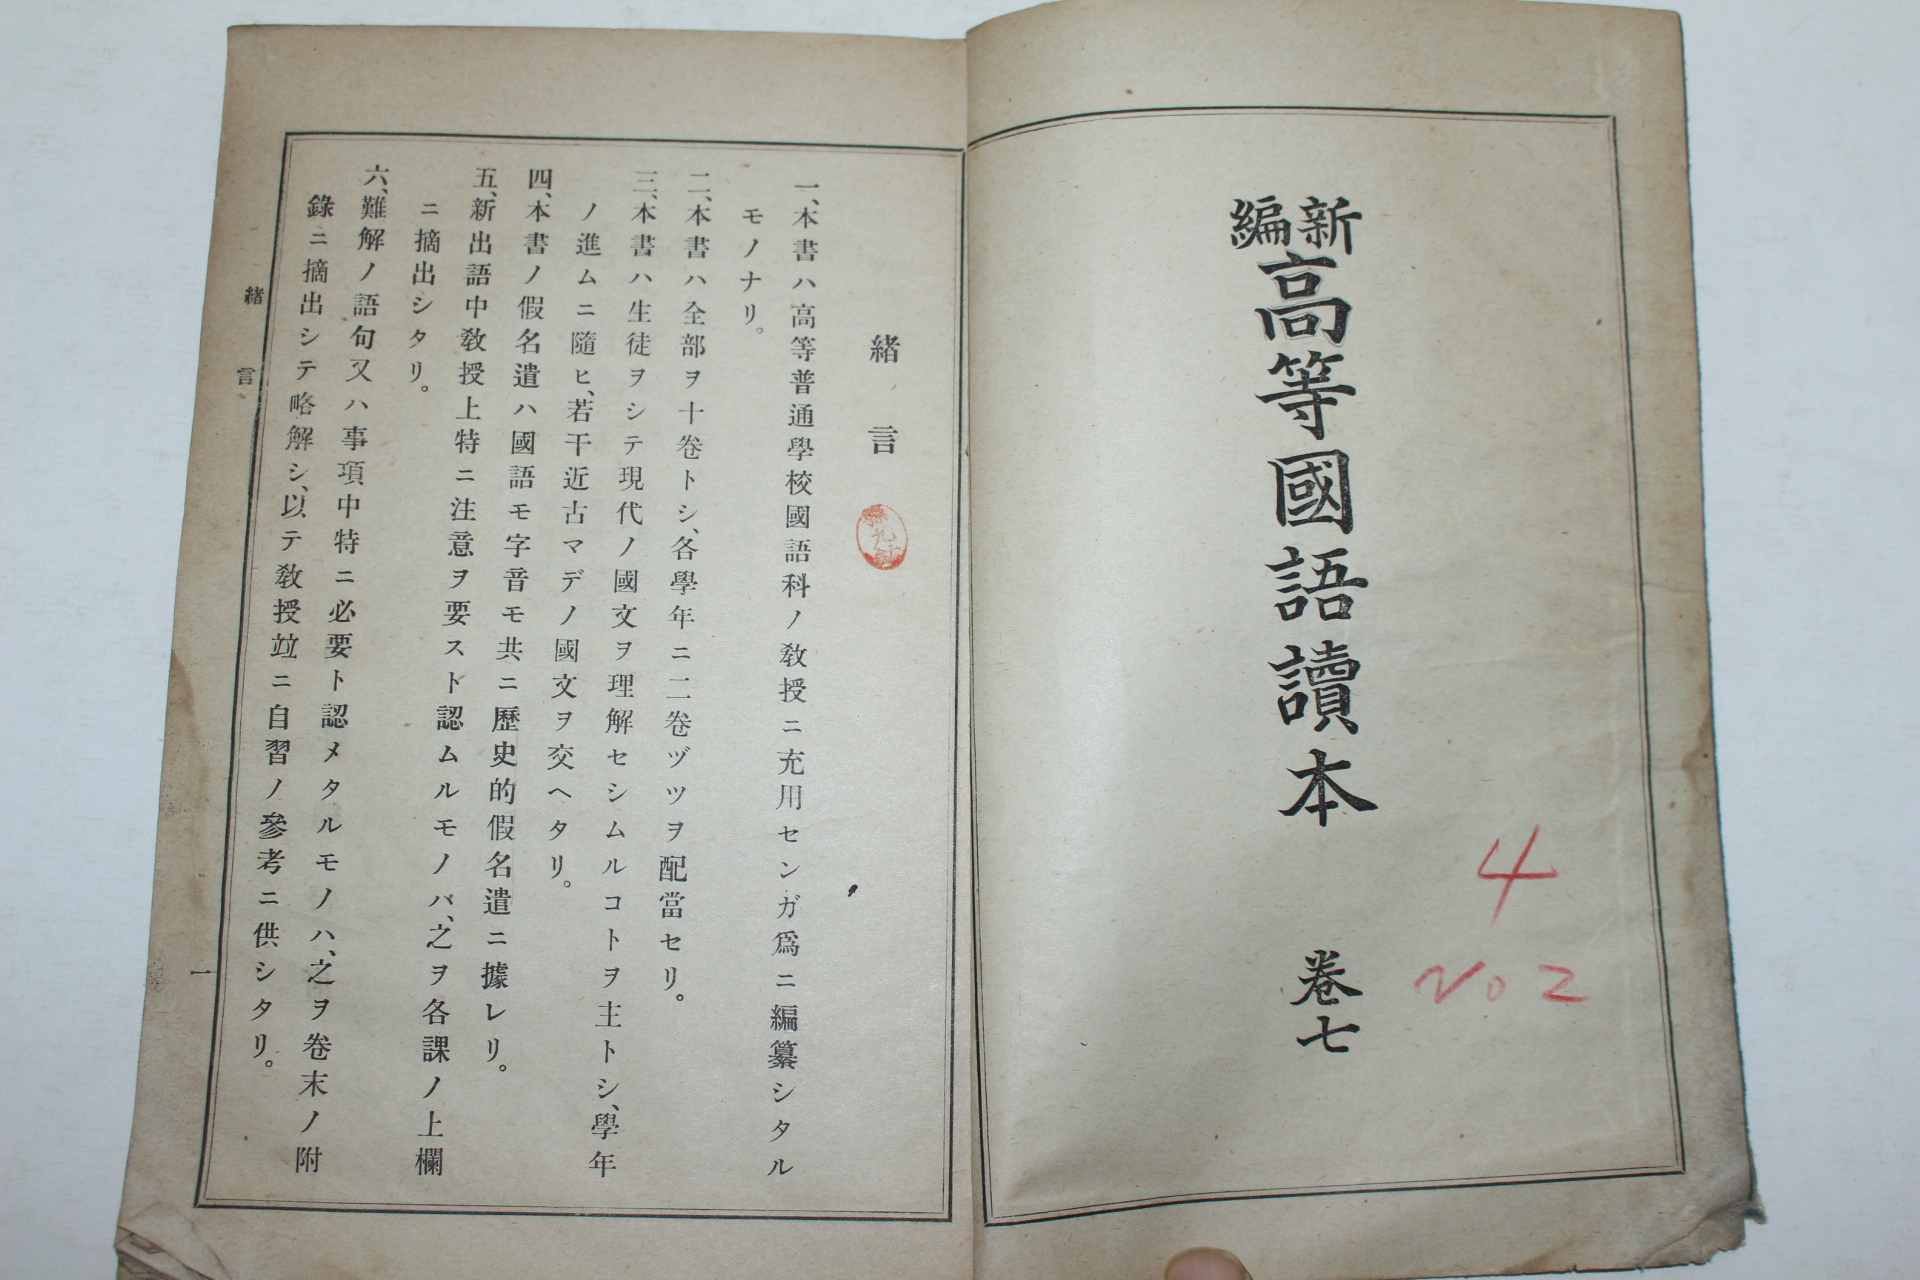 新編高等國語讀本 卷七
4
NO 2
緒言
一、本書ハ高等普通學校國語科ノ敎授ニ充用センガ爲ニ編纂シタル
モノナリ。
二、本書ハ全部ヲ十卷トシ、各學年ニ二卷ヅツヲ配當セリ。
三、本書ハ生徒ヲシテ現代ノ國文ヲ理解セシムルコトヲ主トシ、學年
ノ進ムニ隨ヒ、若干近古マデノ國文ヲ交ヘタリ。
四、本書ノ假名遣ハ國語モ字音モ共ニ歷史的假名遣ニ據レリ。
五、新出語中敎授上特ニ注意ヲ要スト認ムルモノハ、之ヲ各課ノ上欄
ニ摘出シタリ。
六、難解ノ語句又ハ事項中特ニ必要ト認メタルモノハ、之ヲ卷末ノ附
錄ニ摘出シテ略解シ、以テ敎授竝ニ自習ノ參考ニ供シタリ。
緒言
一